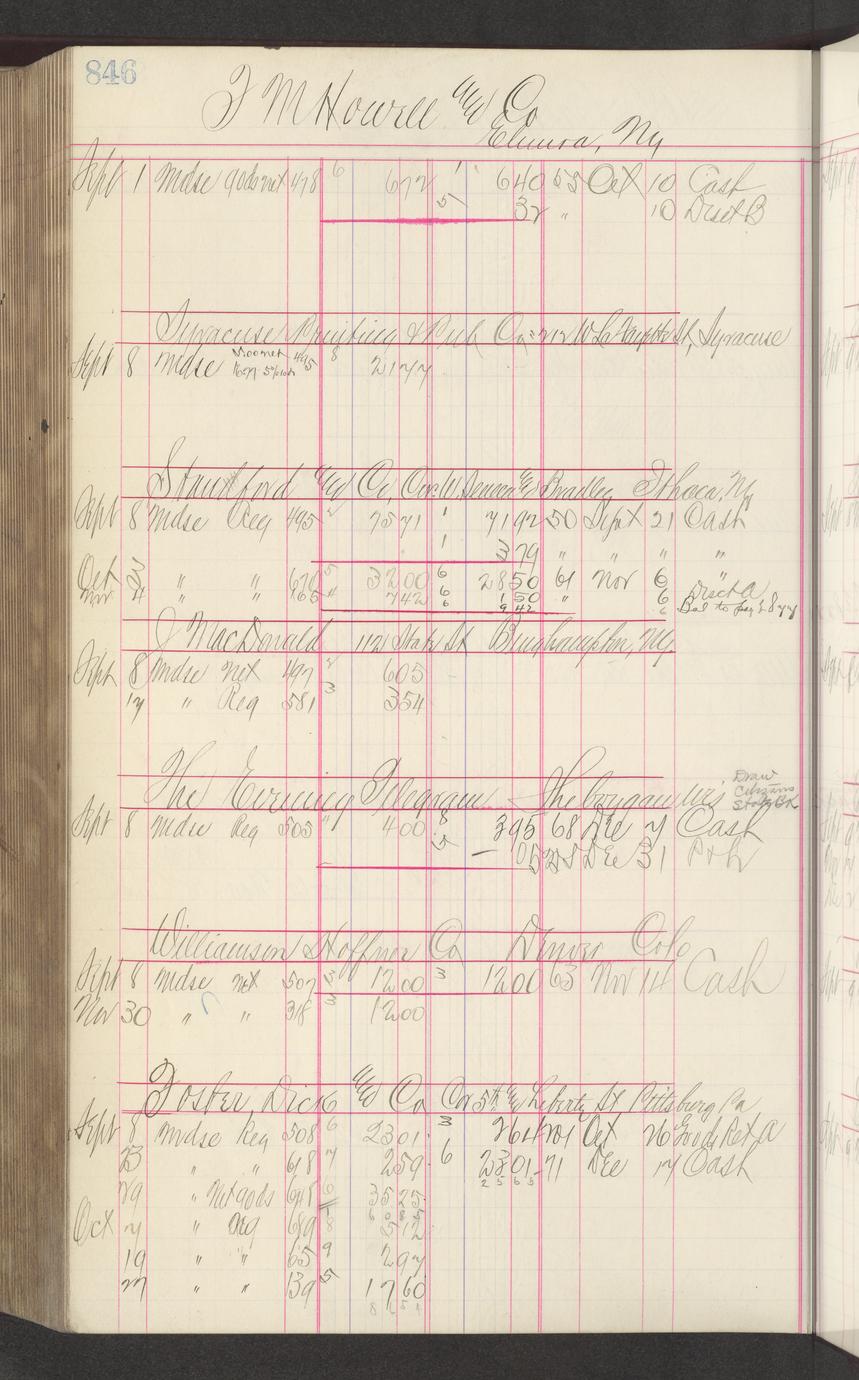 846
J M Howell & Co
Elmira, Ny
Sept 1 Mdse 90ds net 478 6 672 1 640 55 Oct 10 Cash
5 32 " 10 Disct B
Syracuse Printing & Pub Co 212 W La Fayette St, Syracuse
Sept 8 Mdse 30 o net 495 8 2177
Stanfford & Co, Cor. W. Seneca & Bradley Ithaca, Ny
Sept 8 Mdse Reg 495 2 7571 1 7192 50 Sept 21 Cash
1 379 " " " "
Oct 3 " " 670 5 3200 6 2850 61 Nov 6
Nov 4 " " 165 4 742 6 150 " 6 Disct A
6 942 6 Bal to pay 2877
J MacDonald 112 State St Binghampton, Ny
Sept 8 Mdse Net 497 2 605
17 " Reg 581 3 354
The Evening Telegram Sheboygan Wis
Draw
Citizens
State Bk
Sept 8 Mdse Reg 505 " 400 8 395 68 Dec 7 Cash
5 05 258 Dec 31 P&L
Williamson Haffner Co Denver Colo
Sept 8 Mdse Net 507 3 1200 3 1200 63 Nov 14 Cash
Nov 30 " " 318 3 1200
Foster, Dick & Co Cor 5th & Liberty St Pittsburg Pa
Sept 8 Mdse Reg 508 6 2301 3 264 201 Oct 26 Goods Ret A
23 " " 618 7 259 6 2301 71 Dec 17 Cash
2565
29 " Net 90ds 648 6 3525
Oct 7 " Reg 689 8 512
19 " " 65 9 297
27 " " 139 5 1760
8654